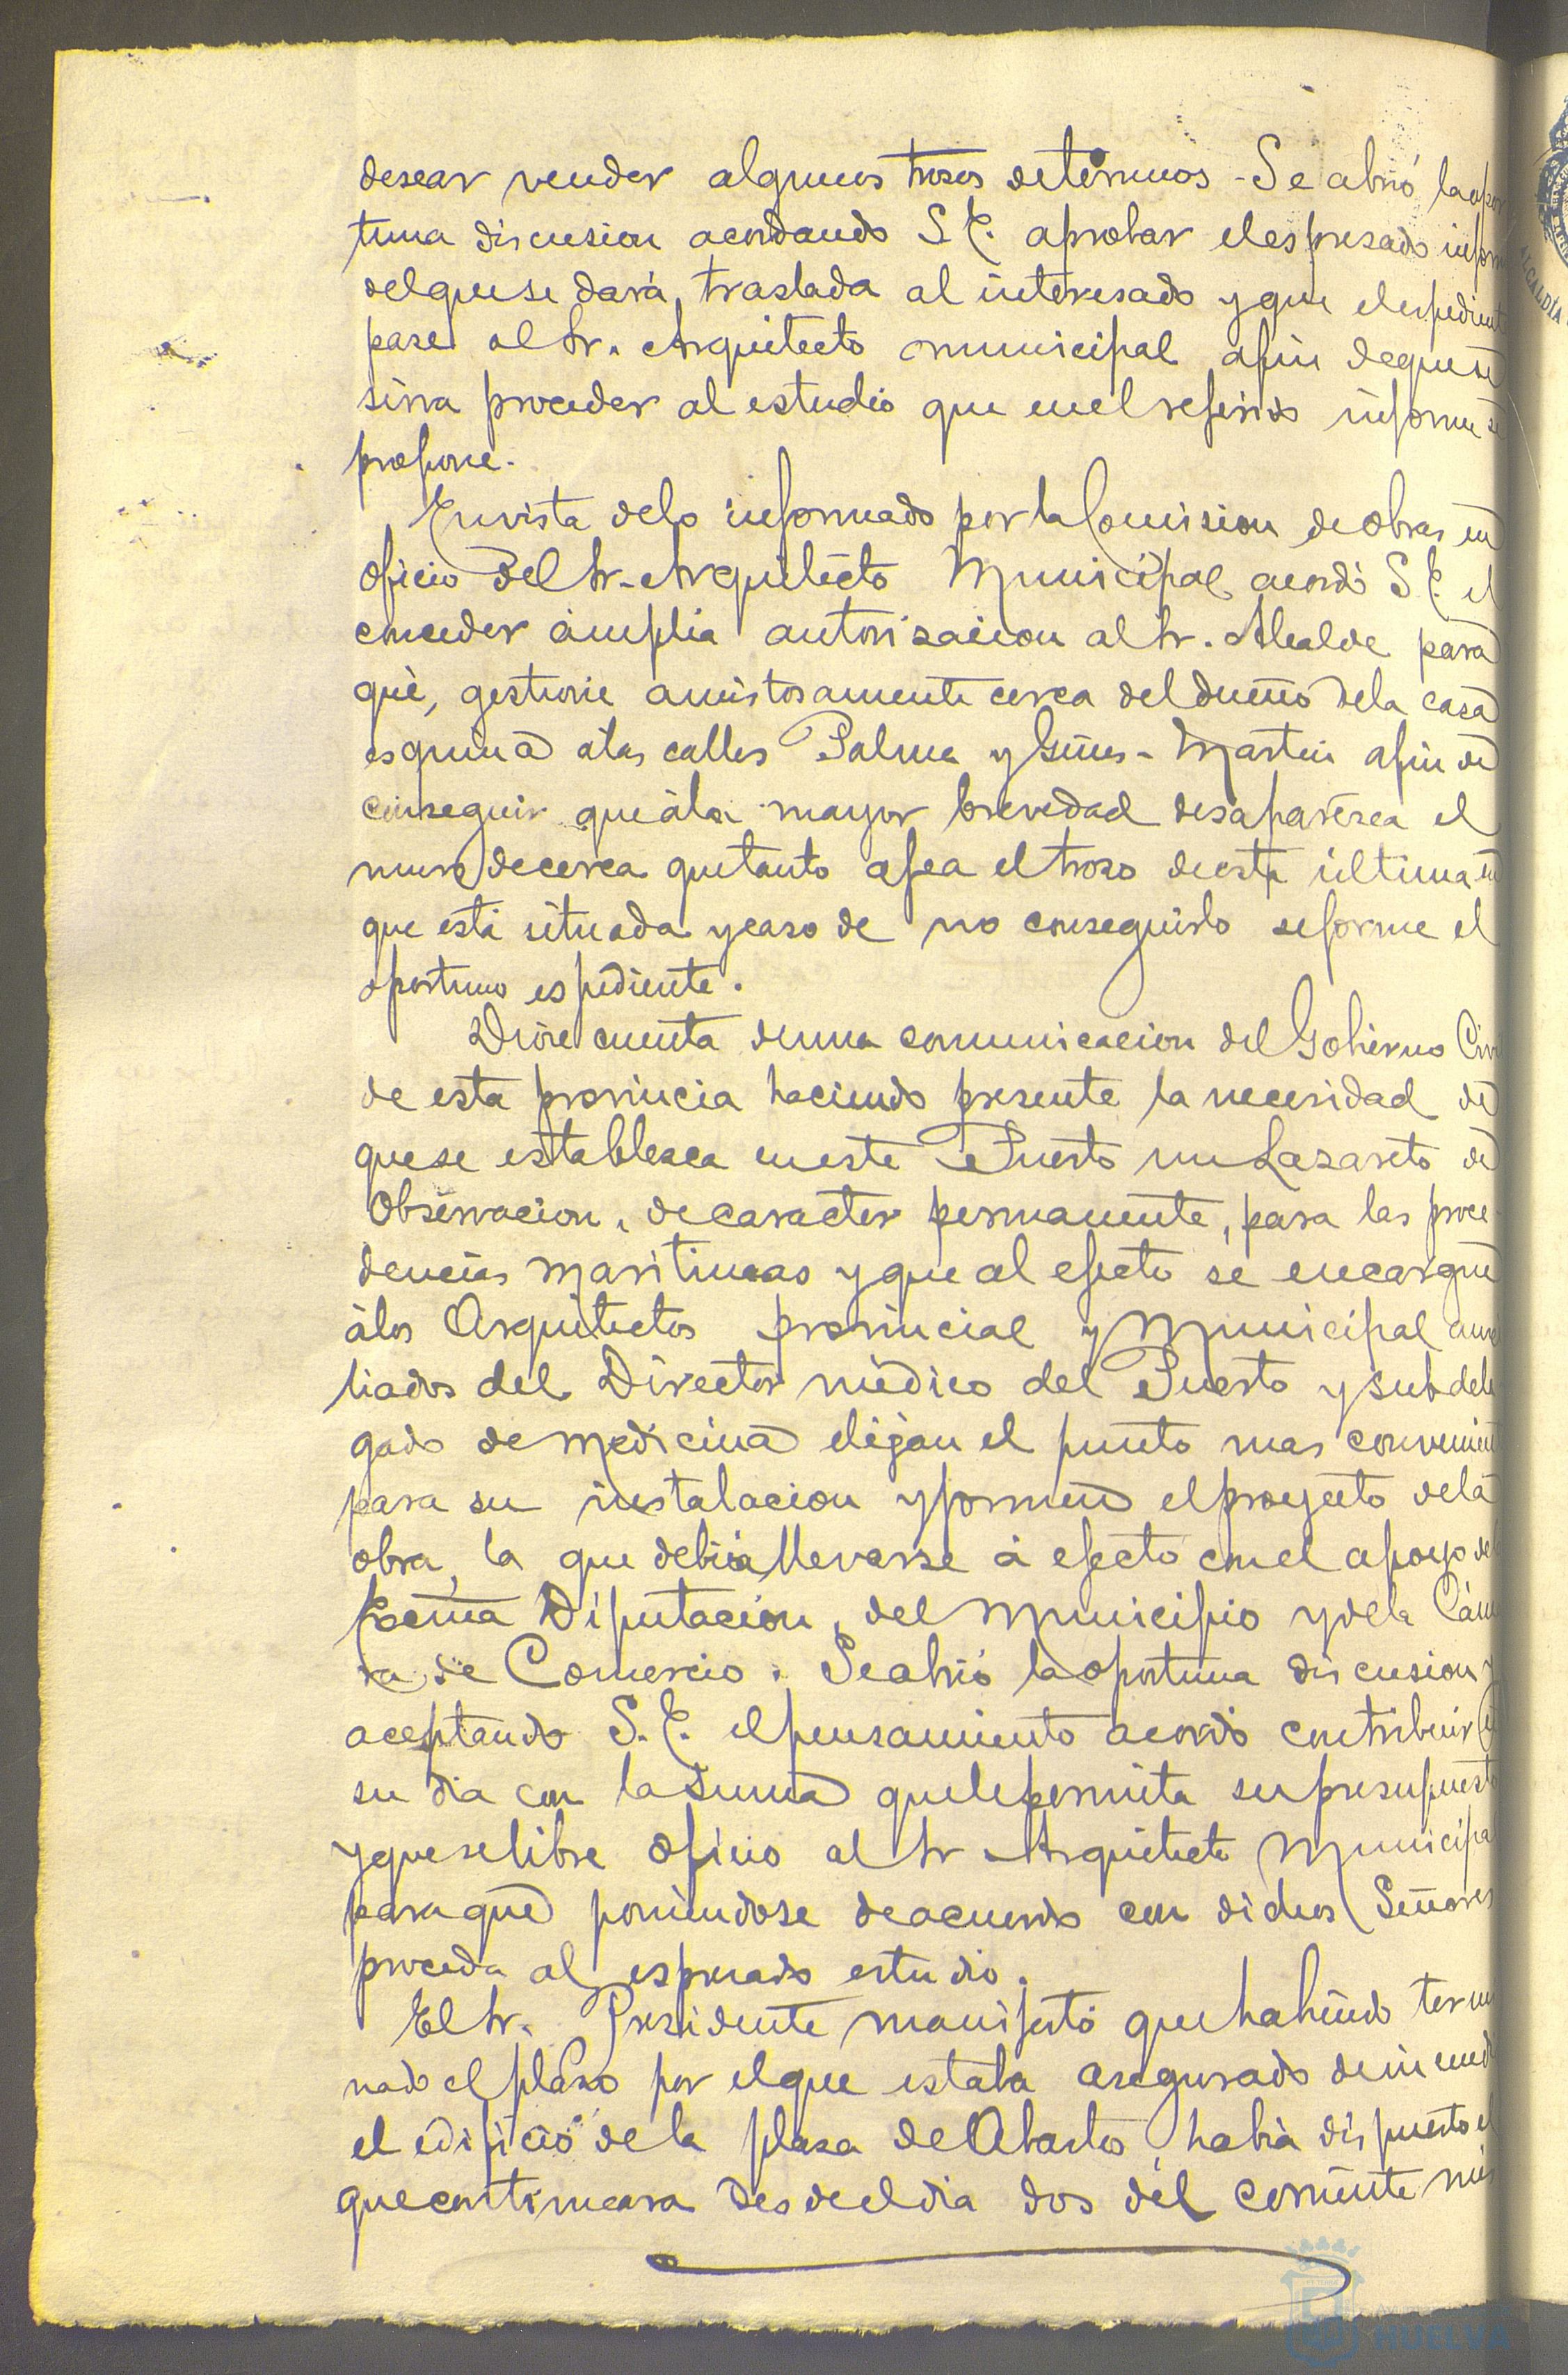 desear vender algunos trosos determinos - Se abrió la opor
tuna discusion acordando S. E. aprobar el espresado inform
del que se dará traslada al interesado y que el espedient
pase al Sr. Arquitecto municipal afin de que se
sirva proceder al estudio que en el referido informe se
propone.
En vista delo informado por la Comision de obras en
oficio del Sr. Arquitecto Municipal acordó S. E. el
conceder ámplia autorisacion al Sr. Alcalde para
qué, gestione amistosamente cerca del dueño dela casa
esquina álas calles Palma y Gines-Martin afin de
conseguir que ála mayor brevedad desaparesca el
muro de cerca que tanto afea el troso de esta última en
que está situada y caso de no conseguirlo se forme el
oportuno espediente.
Dióse cuenta de una comunicacion del Gobierno Civi
de esta provincia haciendo presente la necesidad de
que se establesca en este Puerto un Lasareto de
Observacion, de caracter permanente, para las proce-
dencias maritimas y que al efecto se encargue
álos Arquitectos provincial y Municipal aucsi
liados del Director médico del Puerto y subdele
gado de medicina elijan el punto mas convenient
para su instalacion y formen el proyecto dela
obra, la que debia llevarse á efecto con el apoyo de
Escma Diputacion, del Municipio y dela Cáma
ra de Comercio. Se abrió la oportuna discusion y
aceptando S. E. el pensamiento acordó contribuir en
su dia con la suma que le permita su presupuesto
y que se libre oficio al Sr Arquitecto Municipal
para que poniendose de acuerdo con dichos Señores
proceda al espresado estudio.
El Sr. Presidente manifestó que habiendo termi
nado el plaso por el que estaba asegurado de incendi
el edificio de la plasa de Abastos, habia dispuesto el
que continuara desde el dia dos del corriente mes
ALCALDIA
HUELVA